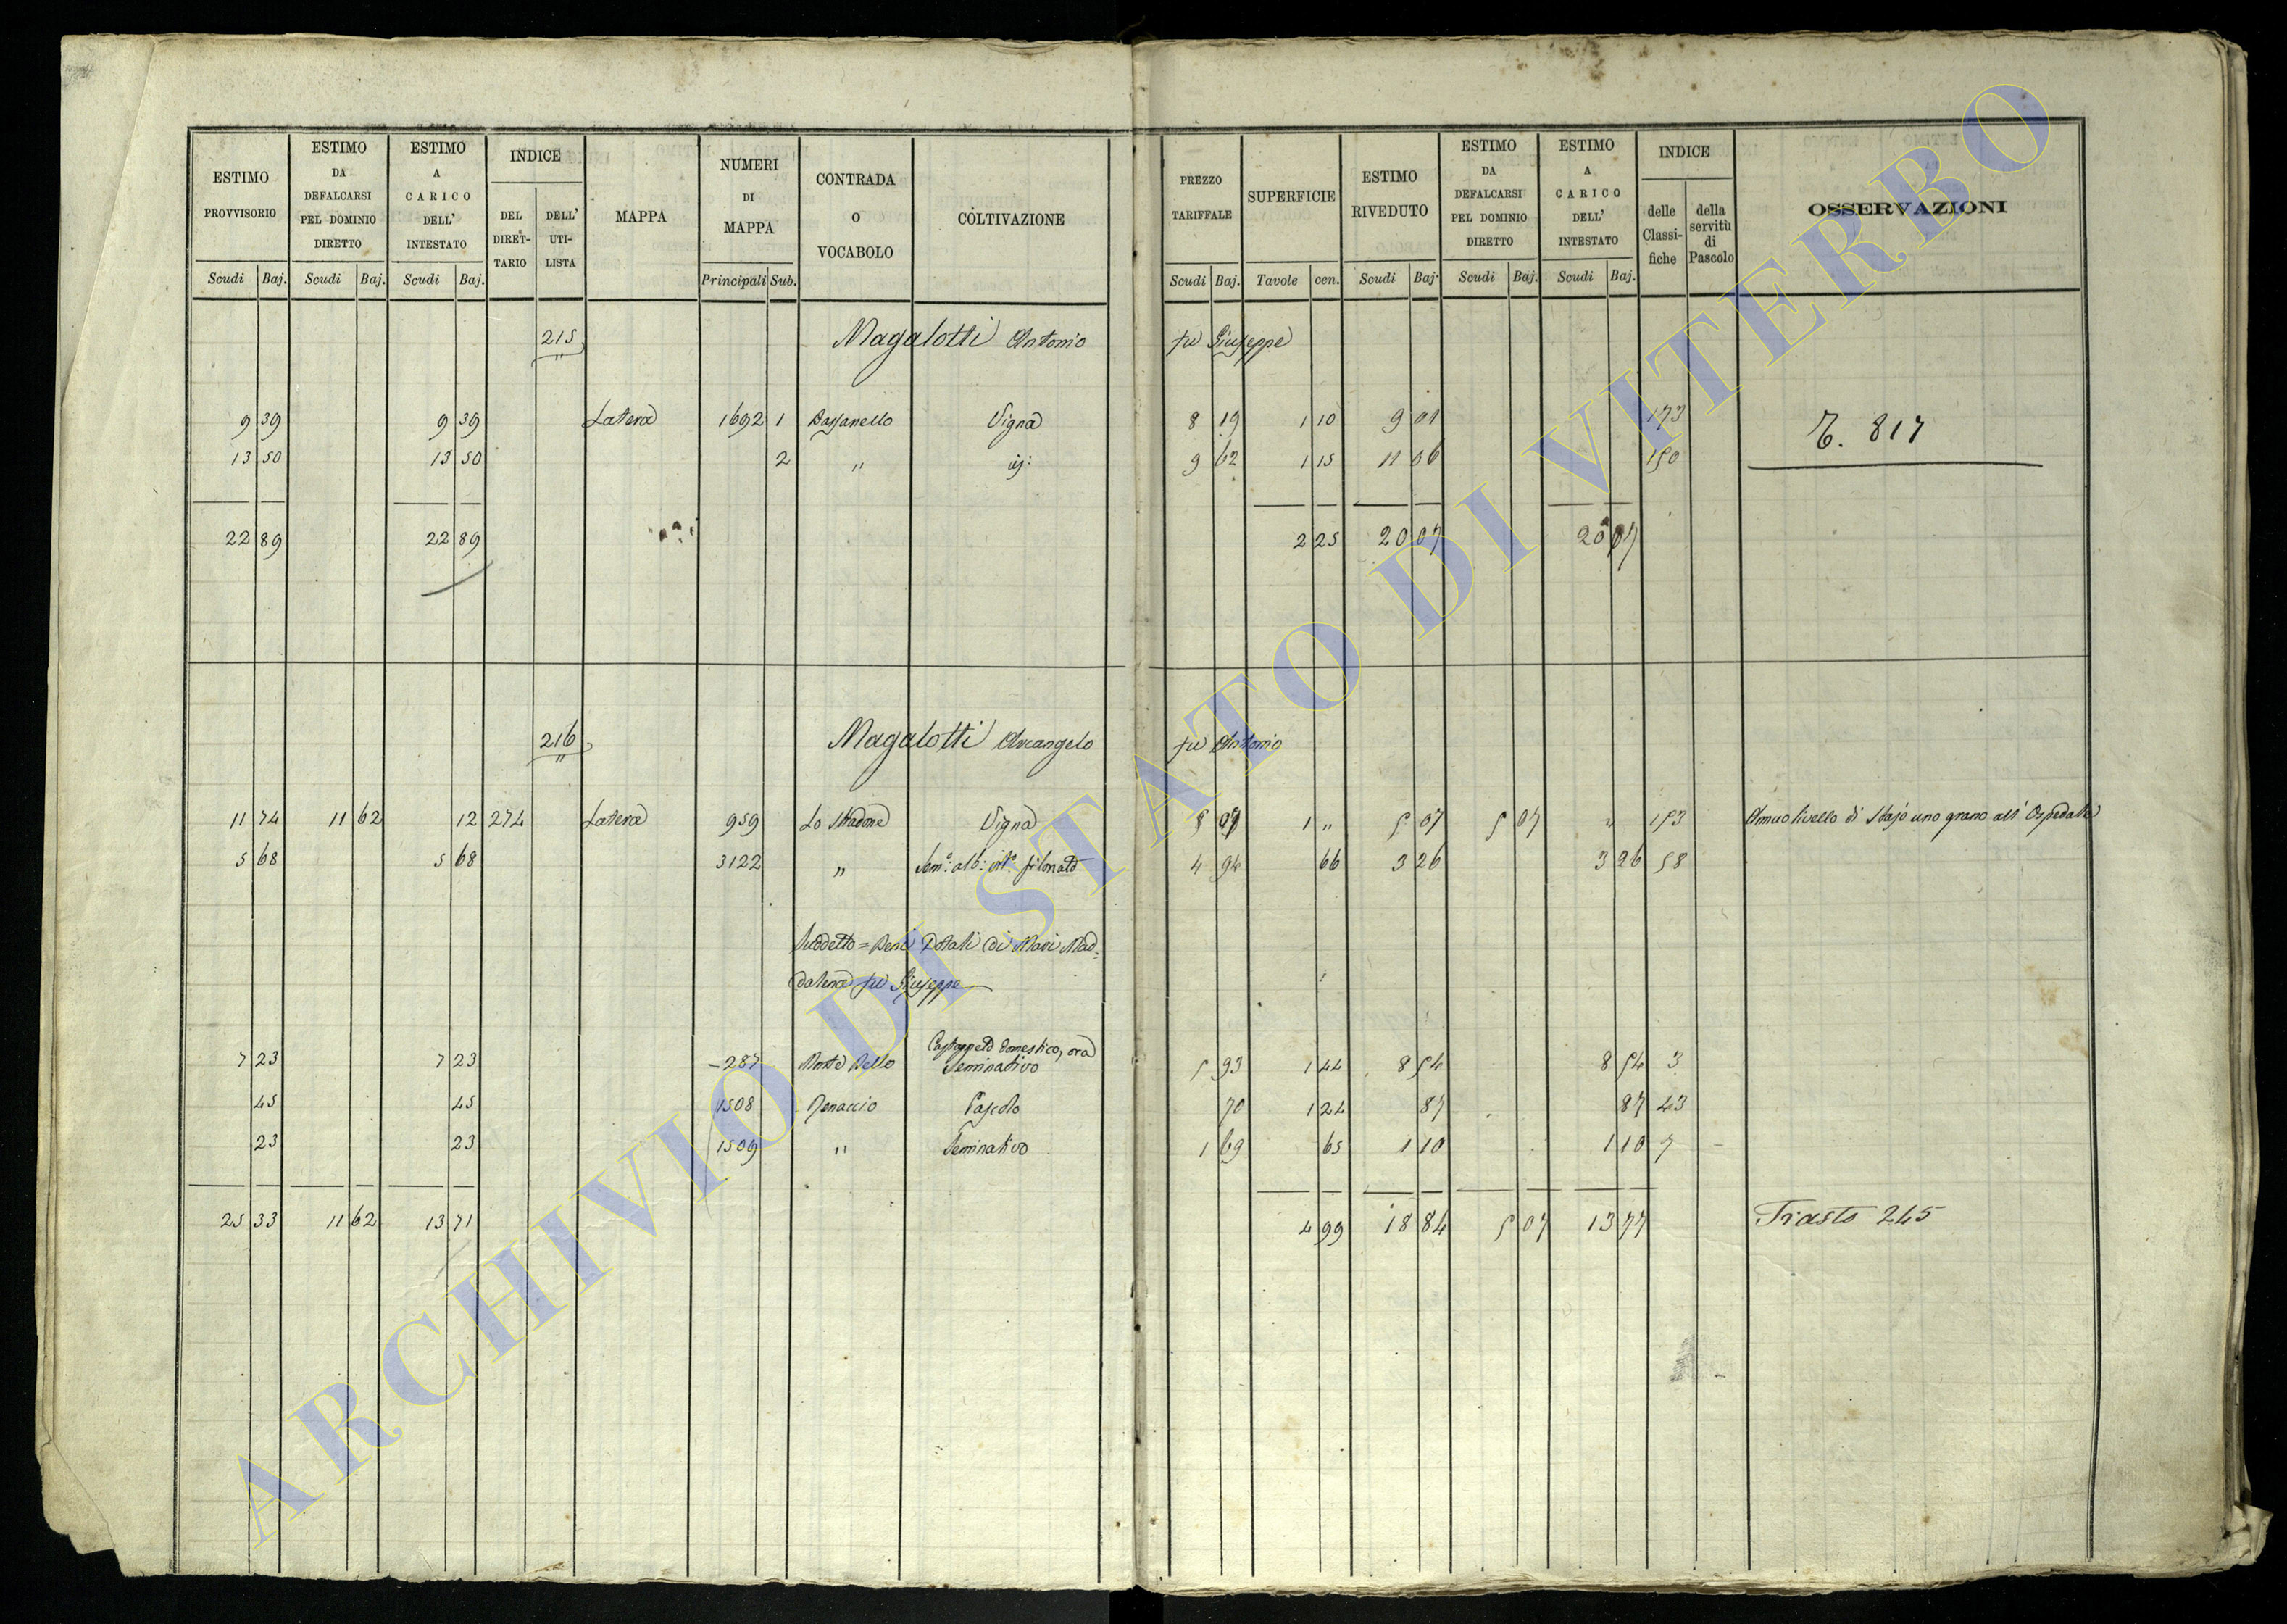 ESTIMO PROVVISORIO | ESTIMO DA DEFALCARSI PEL DOMINIO DIRETTO | ESTIMO A CARICO DELL' INTESTATO | INDICE DEL DIRET-TARIO | DELL' UTI-LISTA | MAPPA | NUMERI DI MAPPA | CONTRADA O VOCABOLO | COLTIVAZIONE | PREZZO TARIFFALE | SUPERFICIE | ESTIMO RIVEDUTO | ESTIMO DA DEFALCARSI PEL DOMINIO DIRETTO | ESTIMO A CARICO DELL' INTESTATO | INDICE delle Classi-fiche | della servitù di Pascolo | OSSERVAZIONI
Scudi Baj. Scudi Baj. Scudi Baj. Principali Sub. Scudi Baj. Tavole cen. Scudi Baj. Scudi Baj. Scudi Baj.
215 Magalotti Antonio fu Giuseppe
9 39 9 39 Latera 1692 1 Bassanello Vigna 8 19 1 10 9 01 173 817
13 50 13 50 2 " id: 9 62 1 15 11 06 150
22 89 22 89 2 25 20 07 20 07
216 Magalotti Arcangelo fu Antonio
11 74 11 62 12 274 Latera 959 Lo Stradone Vigna 5 07 1 " 5 07 5 07 " 153 Annuo livello di Stajo uno grano all' Ospedale
5 68 5 68 3122 " Sem.o alb. vit.o filonato 4 94 66 3 26 3 26 58
Suddetto = Beni Dotali di Mari Mad-
dalena fu Giuseppe
7 23 7 23 287 Monte Bello Castagneto domestico, ora Seminativo 5 93 1 44 8 54 8 54 3
45 45 1508 Renaccio Pascolo 70 1 24 87 87 43
23 23 1509 " Seminativo 1 69 65 1 10 1 10 7
25 33 11 62 13 71 4 99 18 84 5 07 13 77 245
ARCHIVIO DI STATO DI VITERBO